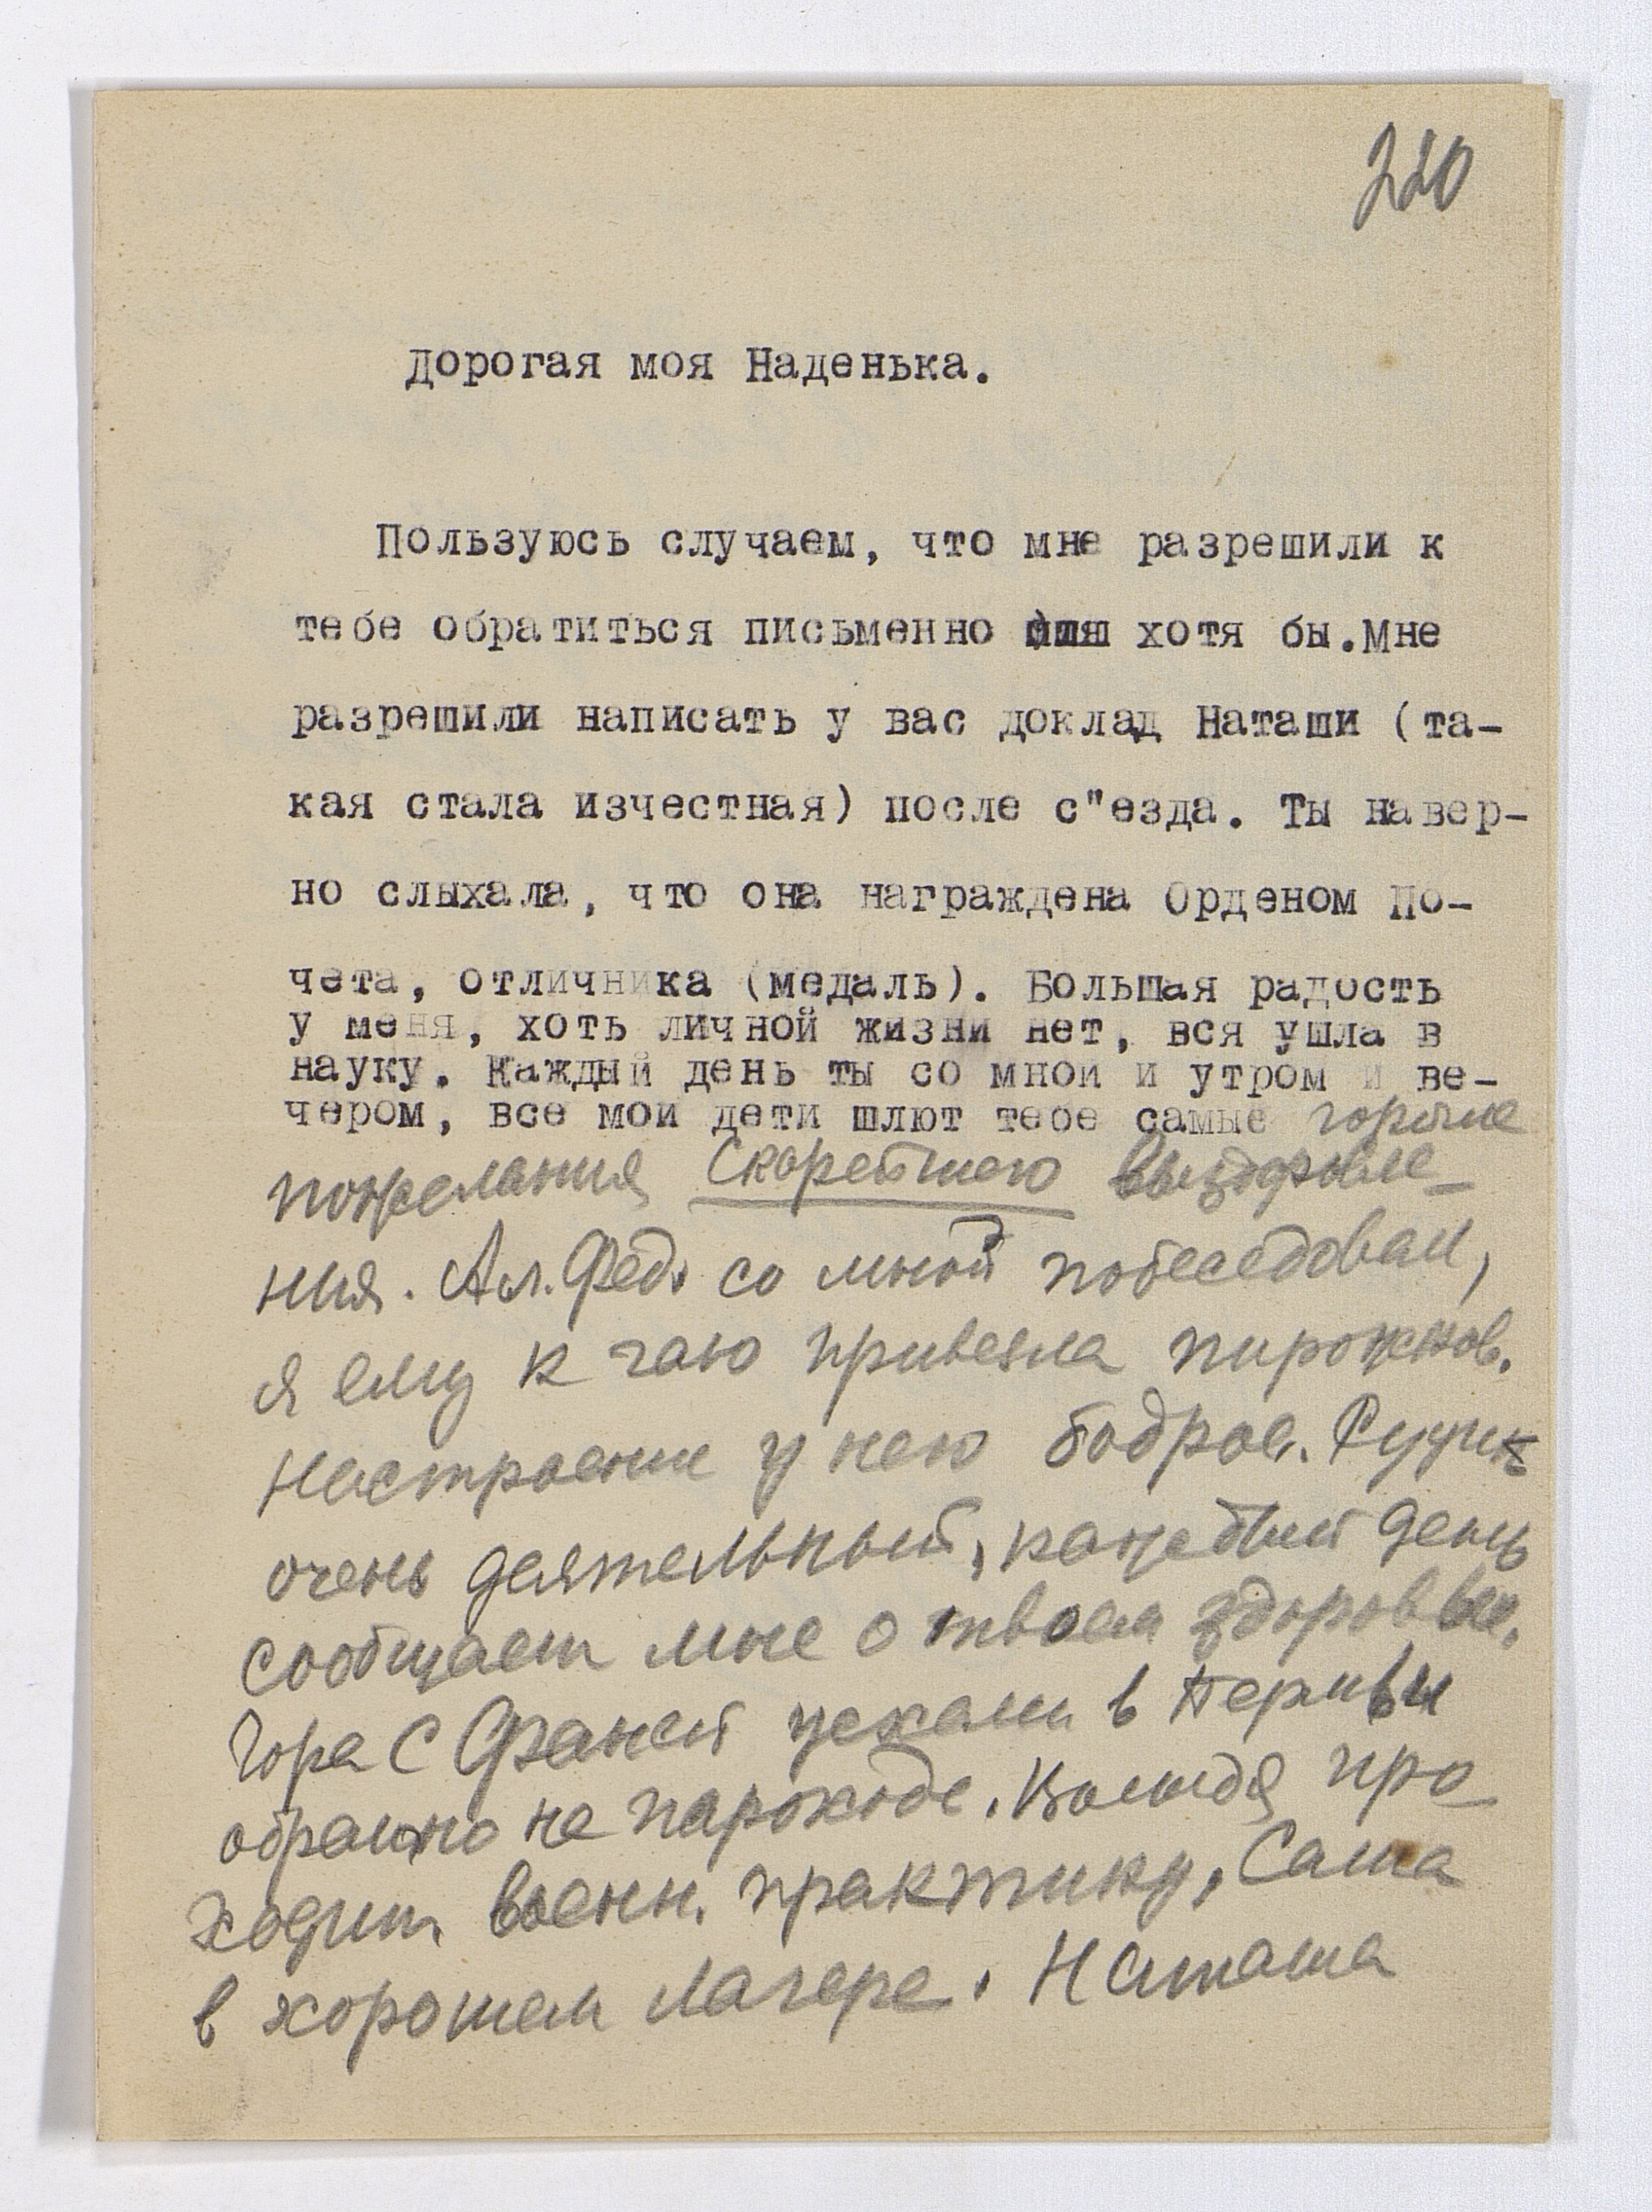 220
Дорогая моя Наденька.
Пользуюсь случаем, что мне разрешили к
тебе обратиться письменно хотя бы.Мне
разрешили написать у вас доклад Наташи (та-
кая стала изчестная) после с"езда. Ты навер-
но слыхала, что она награждена Орденом По-
чета, отличника (медаль). Большая радость
у меня, хоть личной жизни нет, вся ушла в
науку. Каждый день ты со мной и утром и ве-
чером, все мои дети шлют тебе самые горячие
пожелания Скорейшего выздоровле-
ния. Ал. Фед. со мной побеседовал,
я ему к чаю привезла пирожков.
Настроение у него бодрое.
очень деятельный, каждый день
сообщает мне о твоем здоровье.
Гора с Фаней уехали в
обратно на пароходе. Володя про-
ходит военн. практику, Саша
в хорошем лагере. Наташа